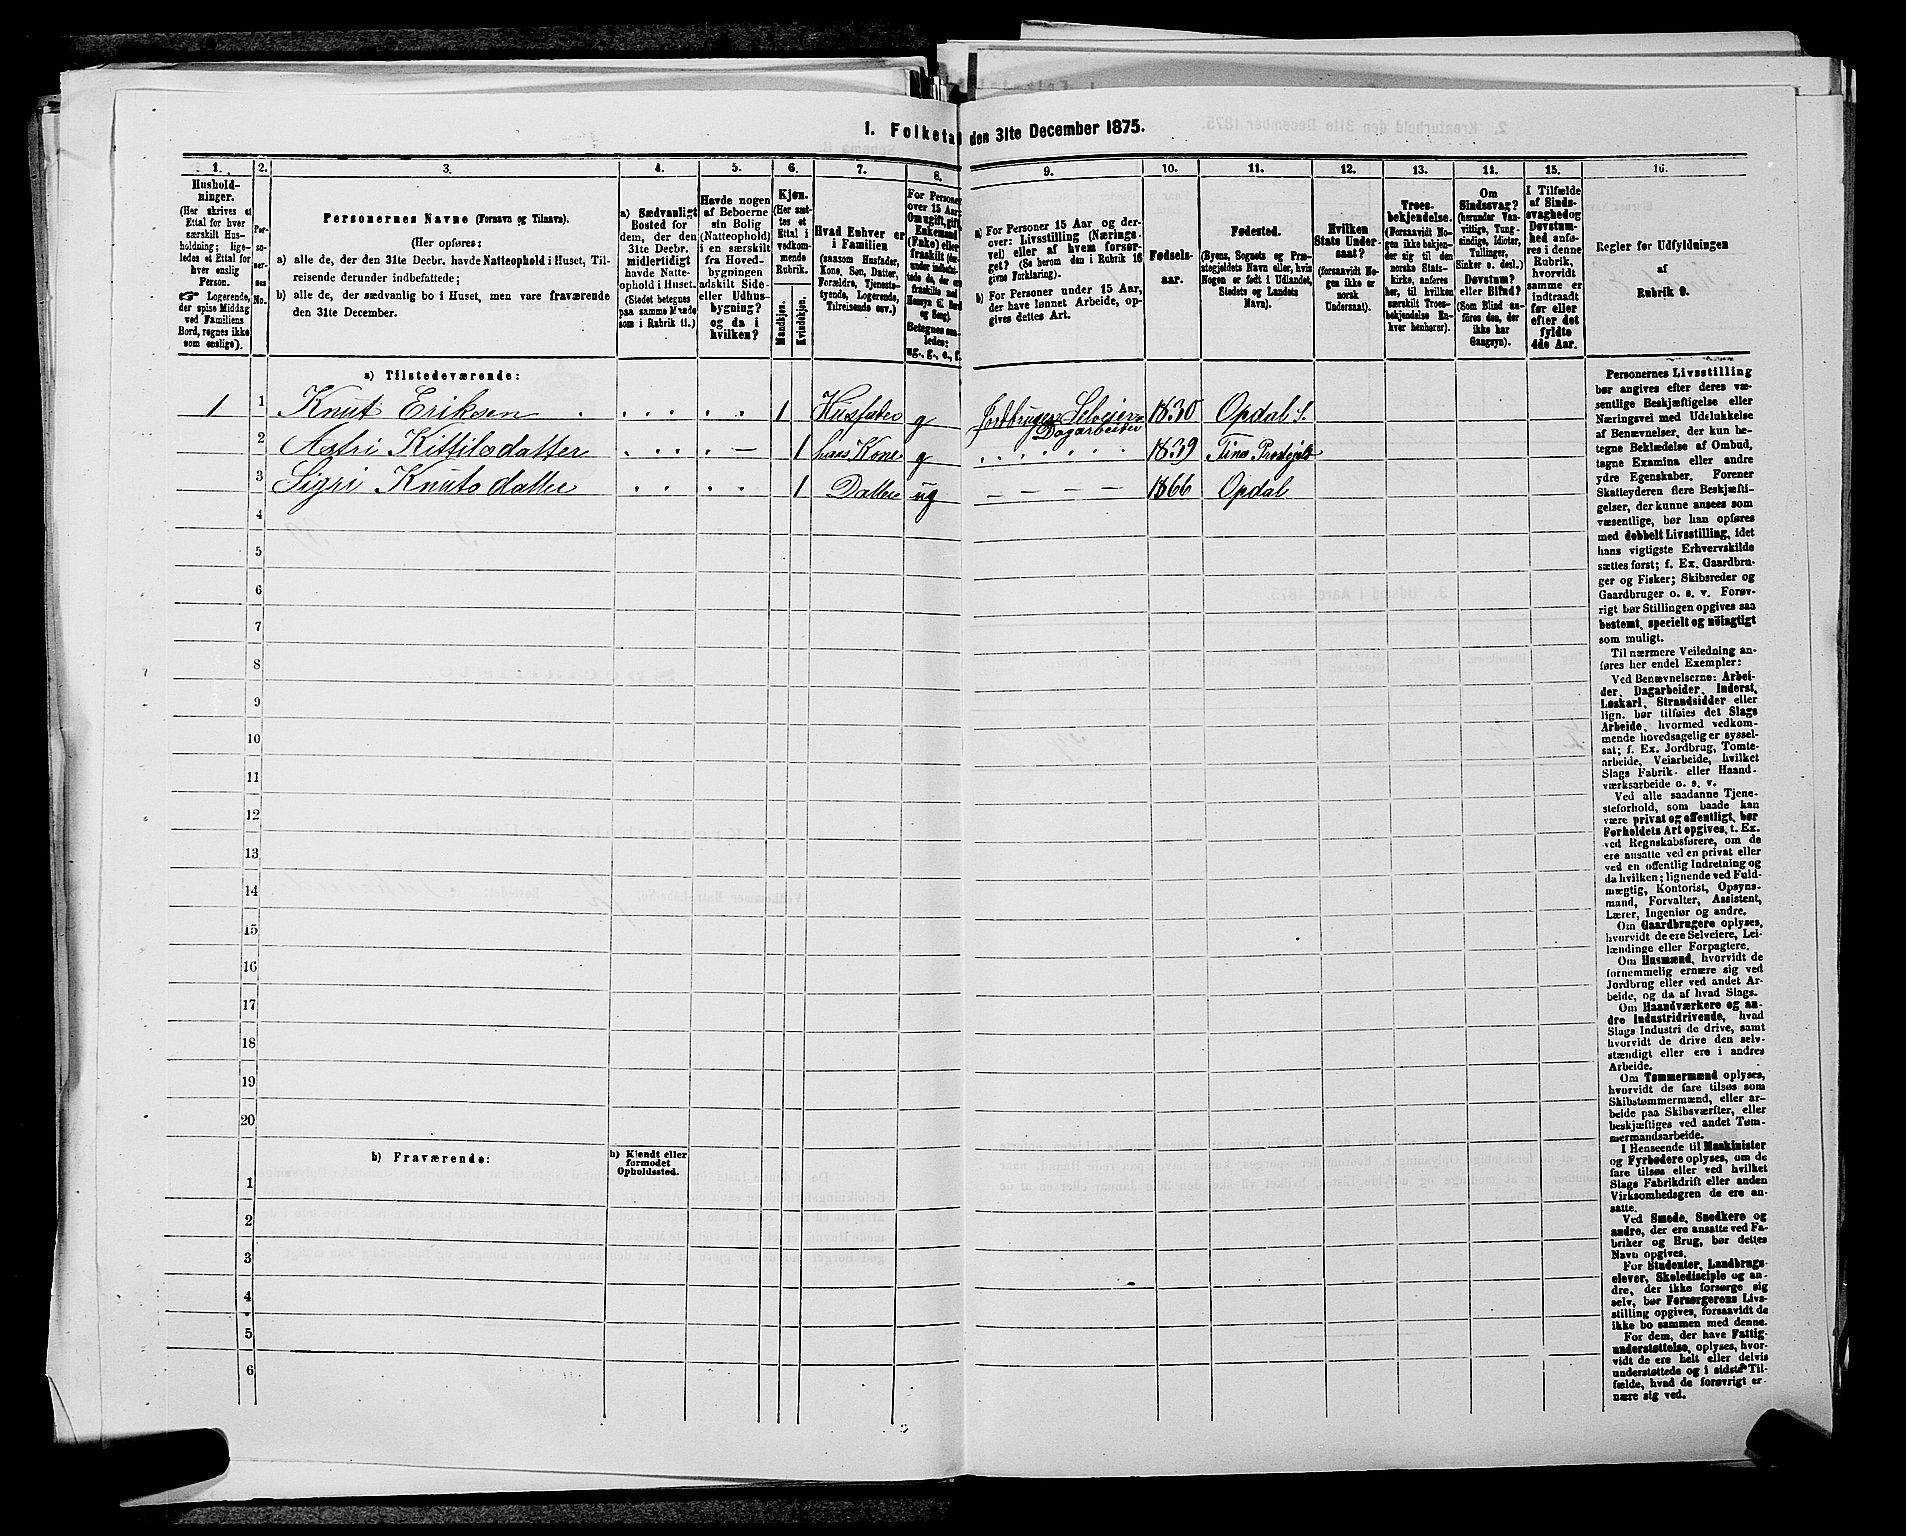 1. Folketal den 31te December 1875.
1.
2.
3.
4.
5.
6.
7.
8.
9.
10.
11.
12.
13.
11.
15.
16.
Hushold-
ninger.
(Her skrives et
Ettal for hver
særskilt Hus-
holdning; lige-
ledes et Ettal for
hver enslig
Person.
☞ Logerende,
der spise Middag
ved Familiens
Bord, regnes ikke
som enslige).
Per-
so-
ner-
nes
No.
Personernes Navne (Fornavn og Tilnavn).
(Her opføres:
a) alle de, der den 31te Decbr. havde Natteophold i Huset, Til-
reisende derunder indbefattede;
b) alle de, der sædvanlig bo i Huset, men vare fraværende
den 31te December.
a) Sædvanligt
Bosted for
dem, der den
31te Decbr.
midlertidigt
havde Natte-
ophold i Huset.
(Stedet betegnes
paa samme Maade
som i Rubrik 11.)
Havde nogen
af Beboerne
sin Bolig
(Natteophold)
i en særskilt
fra Hoved-
bygningen
adskilt Side-
eller Udhus-
bygning?
og da i
hvilken?
Kjøn.
(Her sæt-
tes et
Ettal i
vedkom-
mende
Rubrik.
Mandkjøn.
Kvindekjøn.
Hvad Enhver er
i Familien
(saasom Husfader,
Kone, Søn, Datter,
Forældre, Tjeneste-
tyende, Logerende,
Tilreisende osv.)
For Personer
over 15 Aar:
Om ugift, gift,
Enkemand
(Enke) eller
fraskilt
Betegnes saa-
ledes:
ug., g., e., f.
a) For Personer 15 Aar og der-
over: Livsstilling (Nærings-
vei) eller af hvem forsør-
get? (Se herom den i Rubrik 16
givne Forklaring).
b) For Personer under 15 Aar,
der have lønnet Arbeide, op-
gives dettes Art.
Fødsels-
aar.
Fødested.
(Byens, Sognets og Præ-
stegjeldets Navn eller, hvis
Nogen er født i Udlandet,
Stedets og Landets
Navn).
Hvilken
Stats Under-
saat?
(forsaavidt No-
gen ikke er
norsk
Undersaat).
Troes-
bekjendelse.
(Forsaavidt No-
gen ikke bekjen-
der sig til den
norske Stats-
kirke, anføres
her, til hvilken
særskilt Troes-
bekjendelse En-
hver henhører).
Om
Sindssvag?
(herunder Van-
vittige, Tung-
sindige, Idioter,
Tullinger,
Sinker o. desl.)
Døvstum?
eller Blind?
(Som Blind an-
føres den, der
ikke har
Gangsyn).
I Tilfælde
af Sinds-
svaghed og
Døvstum-
hed anfø-
res i denne
Rubrik,
hvorvidt
samme er
indtraadt
før eller
efter det
fyldte
4de Aar.
Regler for Udfyldningen
af
Rubrik 9.
a) Tilstedeværende:
1 1 Knut Eriksen 1 Husfader g Jordbruger Selveier Dagarbeider 1830 Opdal S.
2 Astri Kittilsdatter 1 hans Kone g 1839 Tins Prestgjeld
3 Sigri Knutsdatter 1 Datter ug 1866 Opdal
4
5
6
7
8
9
10
11
12
13
14
15
16
17
18
19
20
b) Fraværende:
b) Kjendt eller
formodet
Opholdssted.
1
2
3
4
5
6
Personernes Livsstilling
bør angives efter deres væ-
sentlige Beskjæftigelse eller
Næringsvei med Udelukkelse
af Benævnelser, der kun be-
tegne Beklædelse af Ombud,
tagne Examina eller andre
ydre Egenskaber. Forener
Skatteyderen flere Beskjæfti-
gelser, der kunne ansees som
væsentlige, bør han opføres
med dobbelt Livsstilling, idet
hans vigtigste Erhvervskilde
sættes først; f. Ex. Gaardbru-
ger og Fisker; Skibsreder og
Gaardbruger o. s. v. Forøv-
rigt bør Stillingen opgives saa
bestemt, specielt og nøiagtigt
som muligt.
Til nærmere Veiledning an-
føres her endel Exempler:
Ved Benævnelserne: Arbei-
der, Dagarbeider, Inderst,
Løskarl, Strandsidder eller
lign. bør tilføies det Slags
Arbeide, hvormed vedkom-
mende hovedsagelig er syssel-
sat; f. Ex. Jordbrug, Tomte-
arbeide, Veiarbeide, hvilket
Slags Fabrik- eller Haand-
værksarbeide o. s. v.
Ved alle saadanne Tjene-
steforhold, som baade kan
være privat og offentligt, bør
Forholdets Art opgives, t. Ex.
ved Regnskabsførere, om de
ere ansatte ved en privat eller
ved en offentlig Indretning og
da hvilken; lignende ved Fuld-
mægtig, Kontorist, Opsyns-
mand, Forvalter, Assistent,
Lærer, Ingeniør og andre.
Om Gaardbrugere oplyses,
hvorvidt de ere Selveiere, Lei-
lændinge eller Forpagtere.
Om Husmænd, hvorvidt de
fornemmelig ernære sig ved
Jordbrug eller ved andet Ar-
beide, og da af hvad Slags.
Om Haandværkere og an-
dre Industridrivende, hvad
Slags Industri de drive, samt
hvorvidt de drive den selv-
stændigt eller ere i andres
Arbeide.
Om Tømmermænd oplyses,
hvorvidt de fare tilsøs som
Skibstømmermænd, eller ar-
beide paa Skibsværfter, eller
beskjæftiges ved andet Tøm-
mermandsarbeide.
I Henseende til Maskinister
og Fyrbødere oplyses, om de
fare tilsøs eller ved hvilket
Slags Fabrikdrift eller anden
Virksomhedsgren de ere an-
satte.
Ved Smede, Snedkere og
andre, der ere ansatte ved Fa-
briker og Brug, bør dettes
Navn opgives.
For Studenter, Landbrugs-
elever, Skoledisciple og an-
dre, der ikke forsørge sig
selv, bør Forsørgerens Livs-
stilling opgives, forsaavidt de
ikke bo sammen med denne.
For dem, der have Fattig-
understøttelse, oplyses, hvor-
vidt de ere helt eller delvis
understøttede og i sidste Til-
fælde, hvad de forøvrigt er-
nære sig ved.